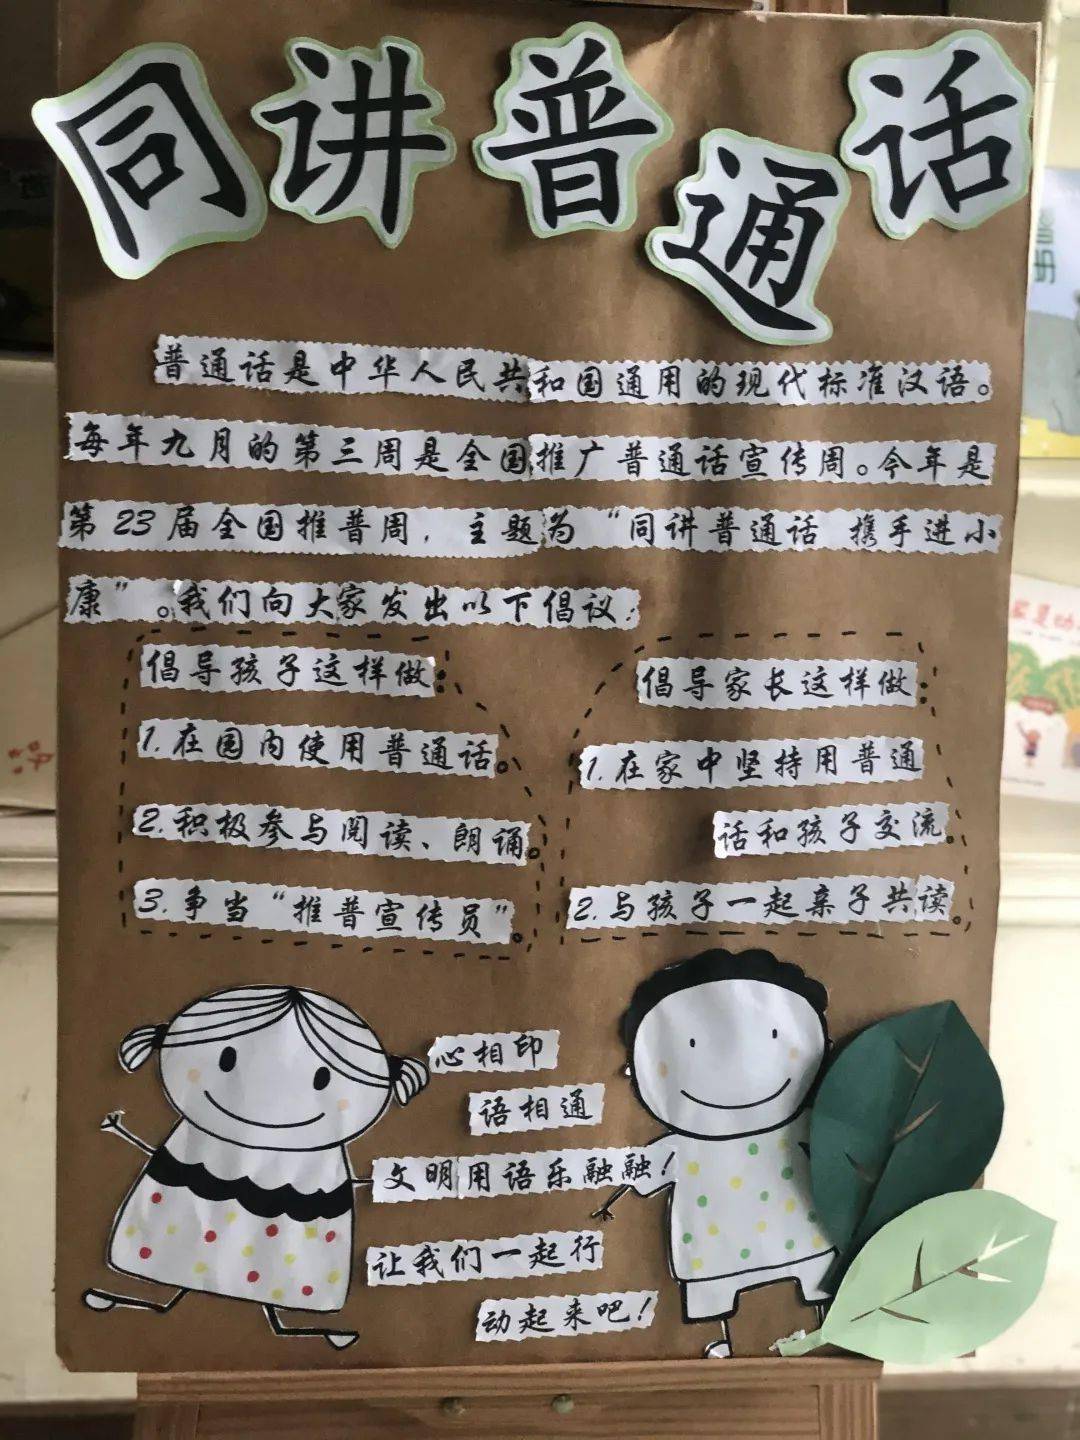 同讲普通话
普通话是中华人民共和国通用的现代标准汉语。
每年九月的第三周是全国推广普通话宣传周。今年是
第23届全国推普周，主题为“同讲普通话 携手进小
康”。我们向大家发出以下倡议：
倡导孩子这样做：
1.在园内使用普通话。
2.积极参与阅读、朗诵。
3.争当“推普宣传员”。
倡导家长这样做：
1.在家中坚持用普通
话和孩子交流。
2.与孩子一起亲子共读。
心相印
语相通
文明用语乐融融！
让我们一起行
动起来吧！